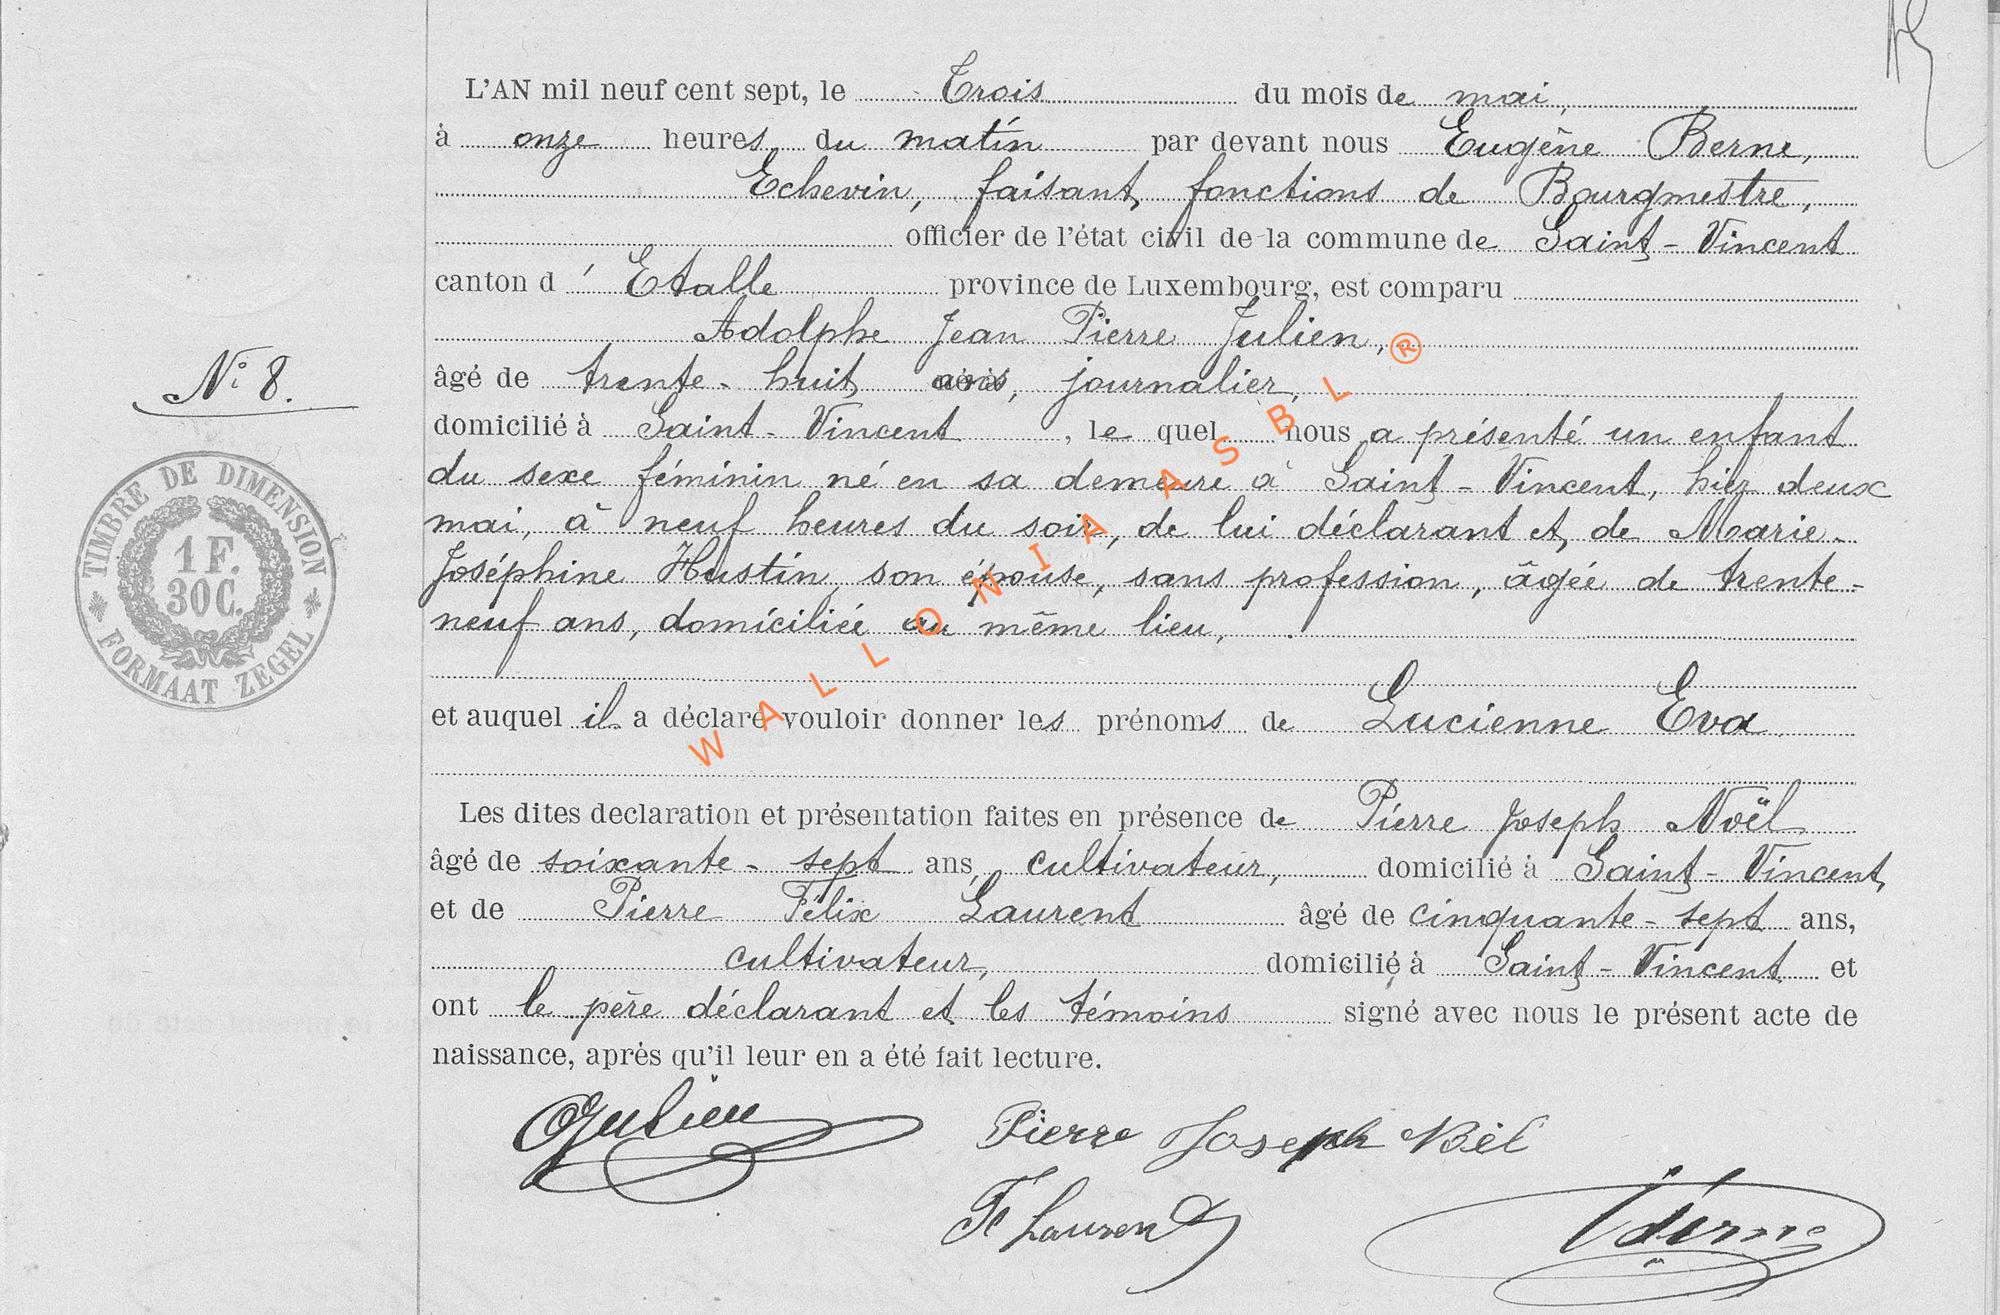 L'AN mil neuf cent sept, le Trois du mois de mai,
à onze heures du matin par devant nous Eugène Berne,
Echevin, faisant fonctions de Bourgmestre,
officier de l'état civil de la commune de Saint-Vincent
canton d'Etalle province de Luxembourg, est comparu
Adolphe Jean Pierre Julien,
âgé de trente-huit ans, journalier,
N° 8.
domicilié à Saint-Vincent, le quel nous a présenté un enfant
du sexe féminin né en sa demeure à Saint-Vincent, hier deux
mai, à neuf heures du soir, de lui déclarant et de Marie-
Joséphine Hustin, son épouse, sans profession, âgée de trente-
neuf ans, domiciliée au même lieu,
TIMBRE DE DIMENSION
1 F.
30 C.
FORMAAT ZEGEL
et auquel il a déclaré vouloir donner les prénoms de Lucienne Eva
Les dites declaration et présentation faites en présence de Pierre Joseph Noël
âgé de soixante-sept ans, cultivateur, domicilié à Saint-Vincent,
et de Pierre Félix Laurent âgé de cinquante-sept ans,
cultivateur, domicilié à Saint-Vincent et
ont le père déclarant et les témoins signé avec nous le présent acte de
naissance, après qu'il leur en a été fait lecture.
AJulien
Pierre Joseph Noël
F Laurent
EBerne
WALLONIA ASBL ®